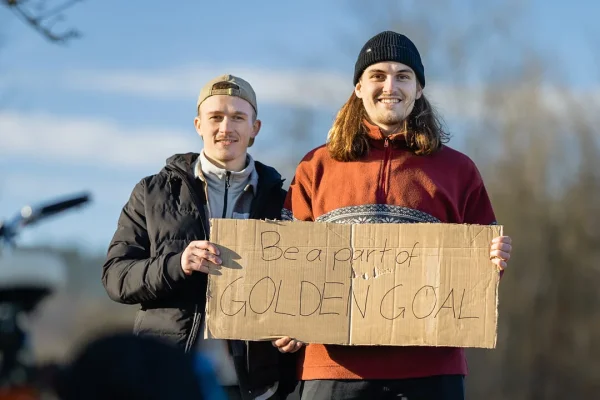 Be a part of
GOLDEN GOAL